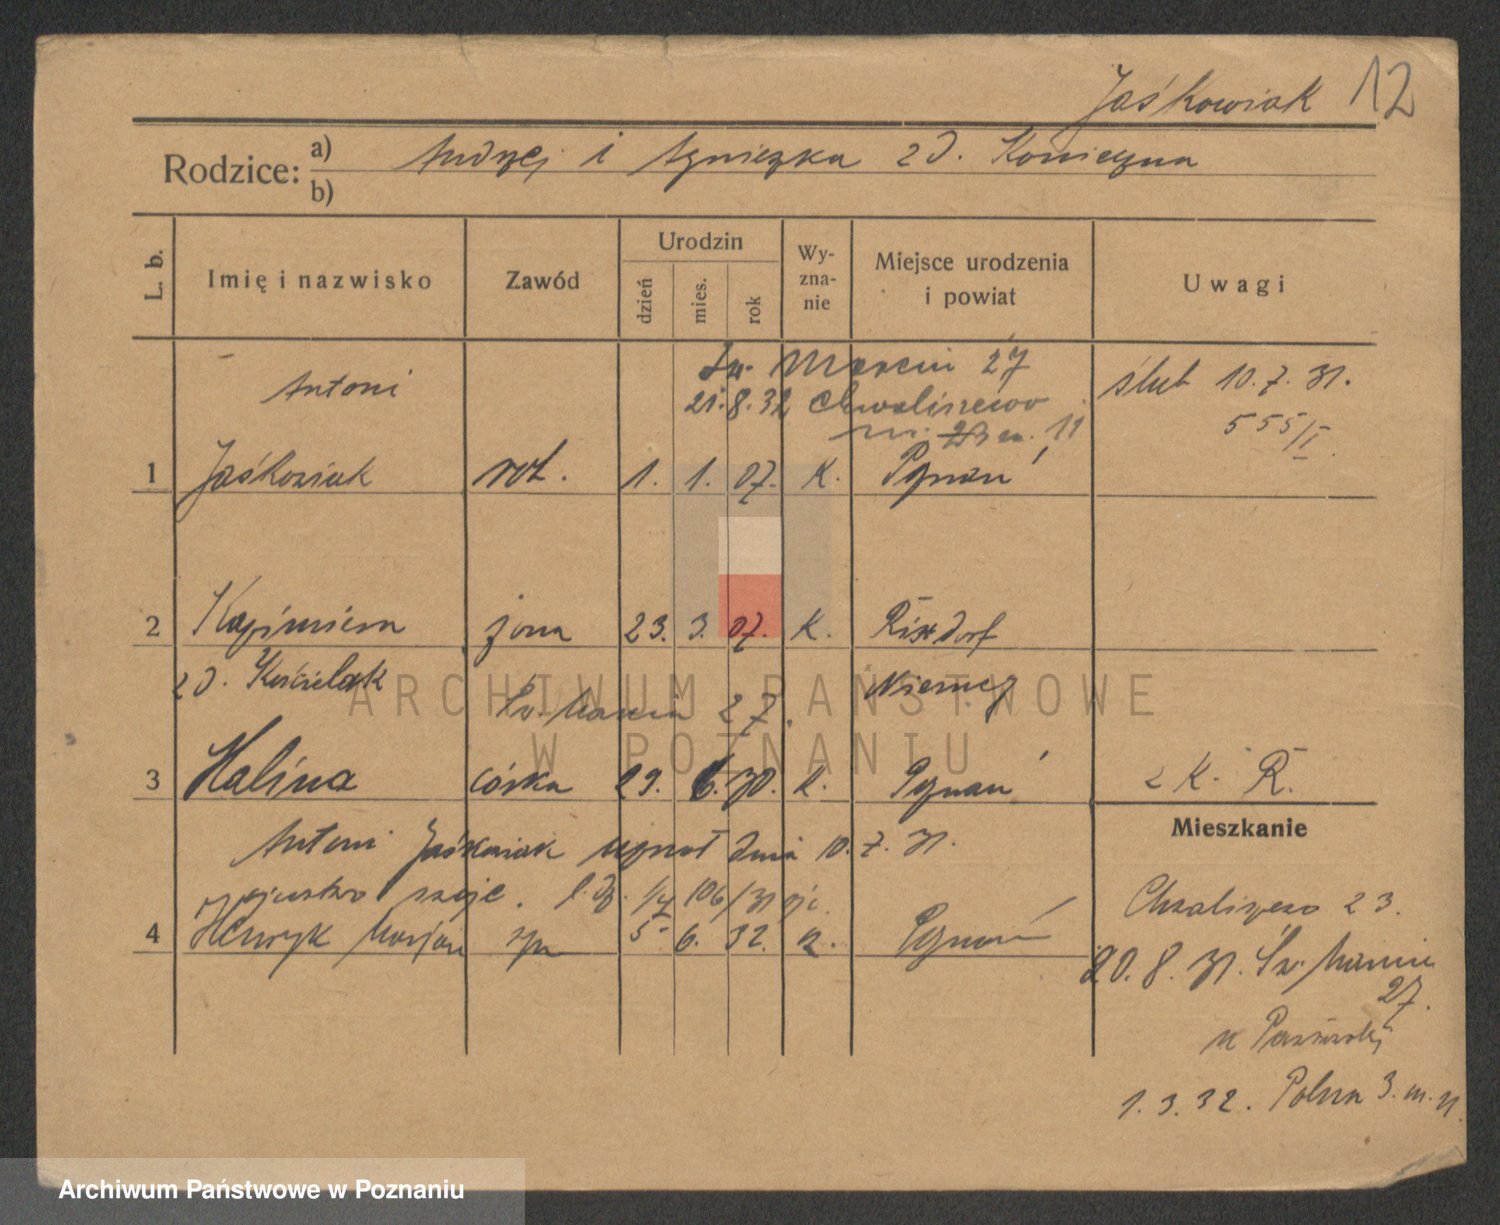 Jaśkowiak 12
Rodzice: a) Andrzej i Agnieszka zd. Konieczna
b)
L. b.
Imię i nazwisko
Zawód
Urodzin
dzień
mies.
rok
Wy-
zna-
nie
Miejsce urodzenia
i powiat
Uwagi
Św. Marcin 27
Antoni
21.8.32 Chwaliszewo
m. 11
ślub 10.7.31.
555/I
1 Jaśkowiak rob. 1. 1. 07. K. Poznań
2 Kazimiera żona 23. 3. 07. K. Rixdorf
zd. Kościelak Niemcy
Św. Marcin 27.
ARCHIWUM PAŃSTWOWE
W POZNANIU
3 Halina córka 29. 6. 30. K. Poznań
z K. R.
Antoni Jaśkowiak uznał dnia 10.7.31.
ojcostwo swoje.
4 Henryk Marjan syn 5. 6. 32. K. Poznań
Mieszkanie
Chwaliszewo 23.
20.8.31. Św. Marcin
27.
1.3.32. Polna 3. m.
Archiwum Państwowe w Poznaniu